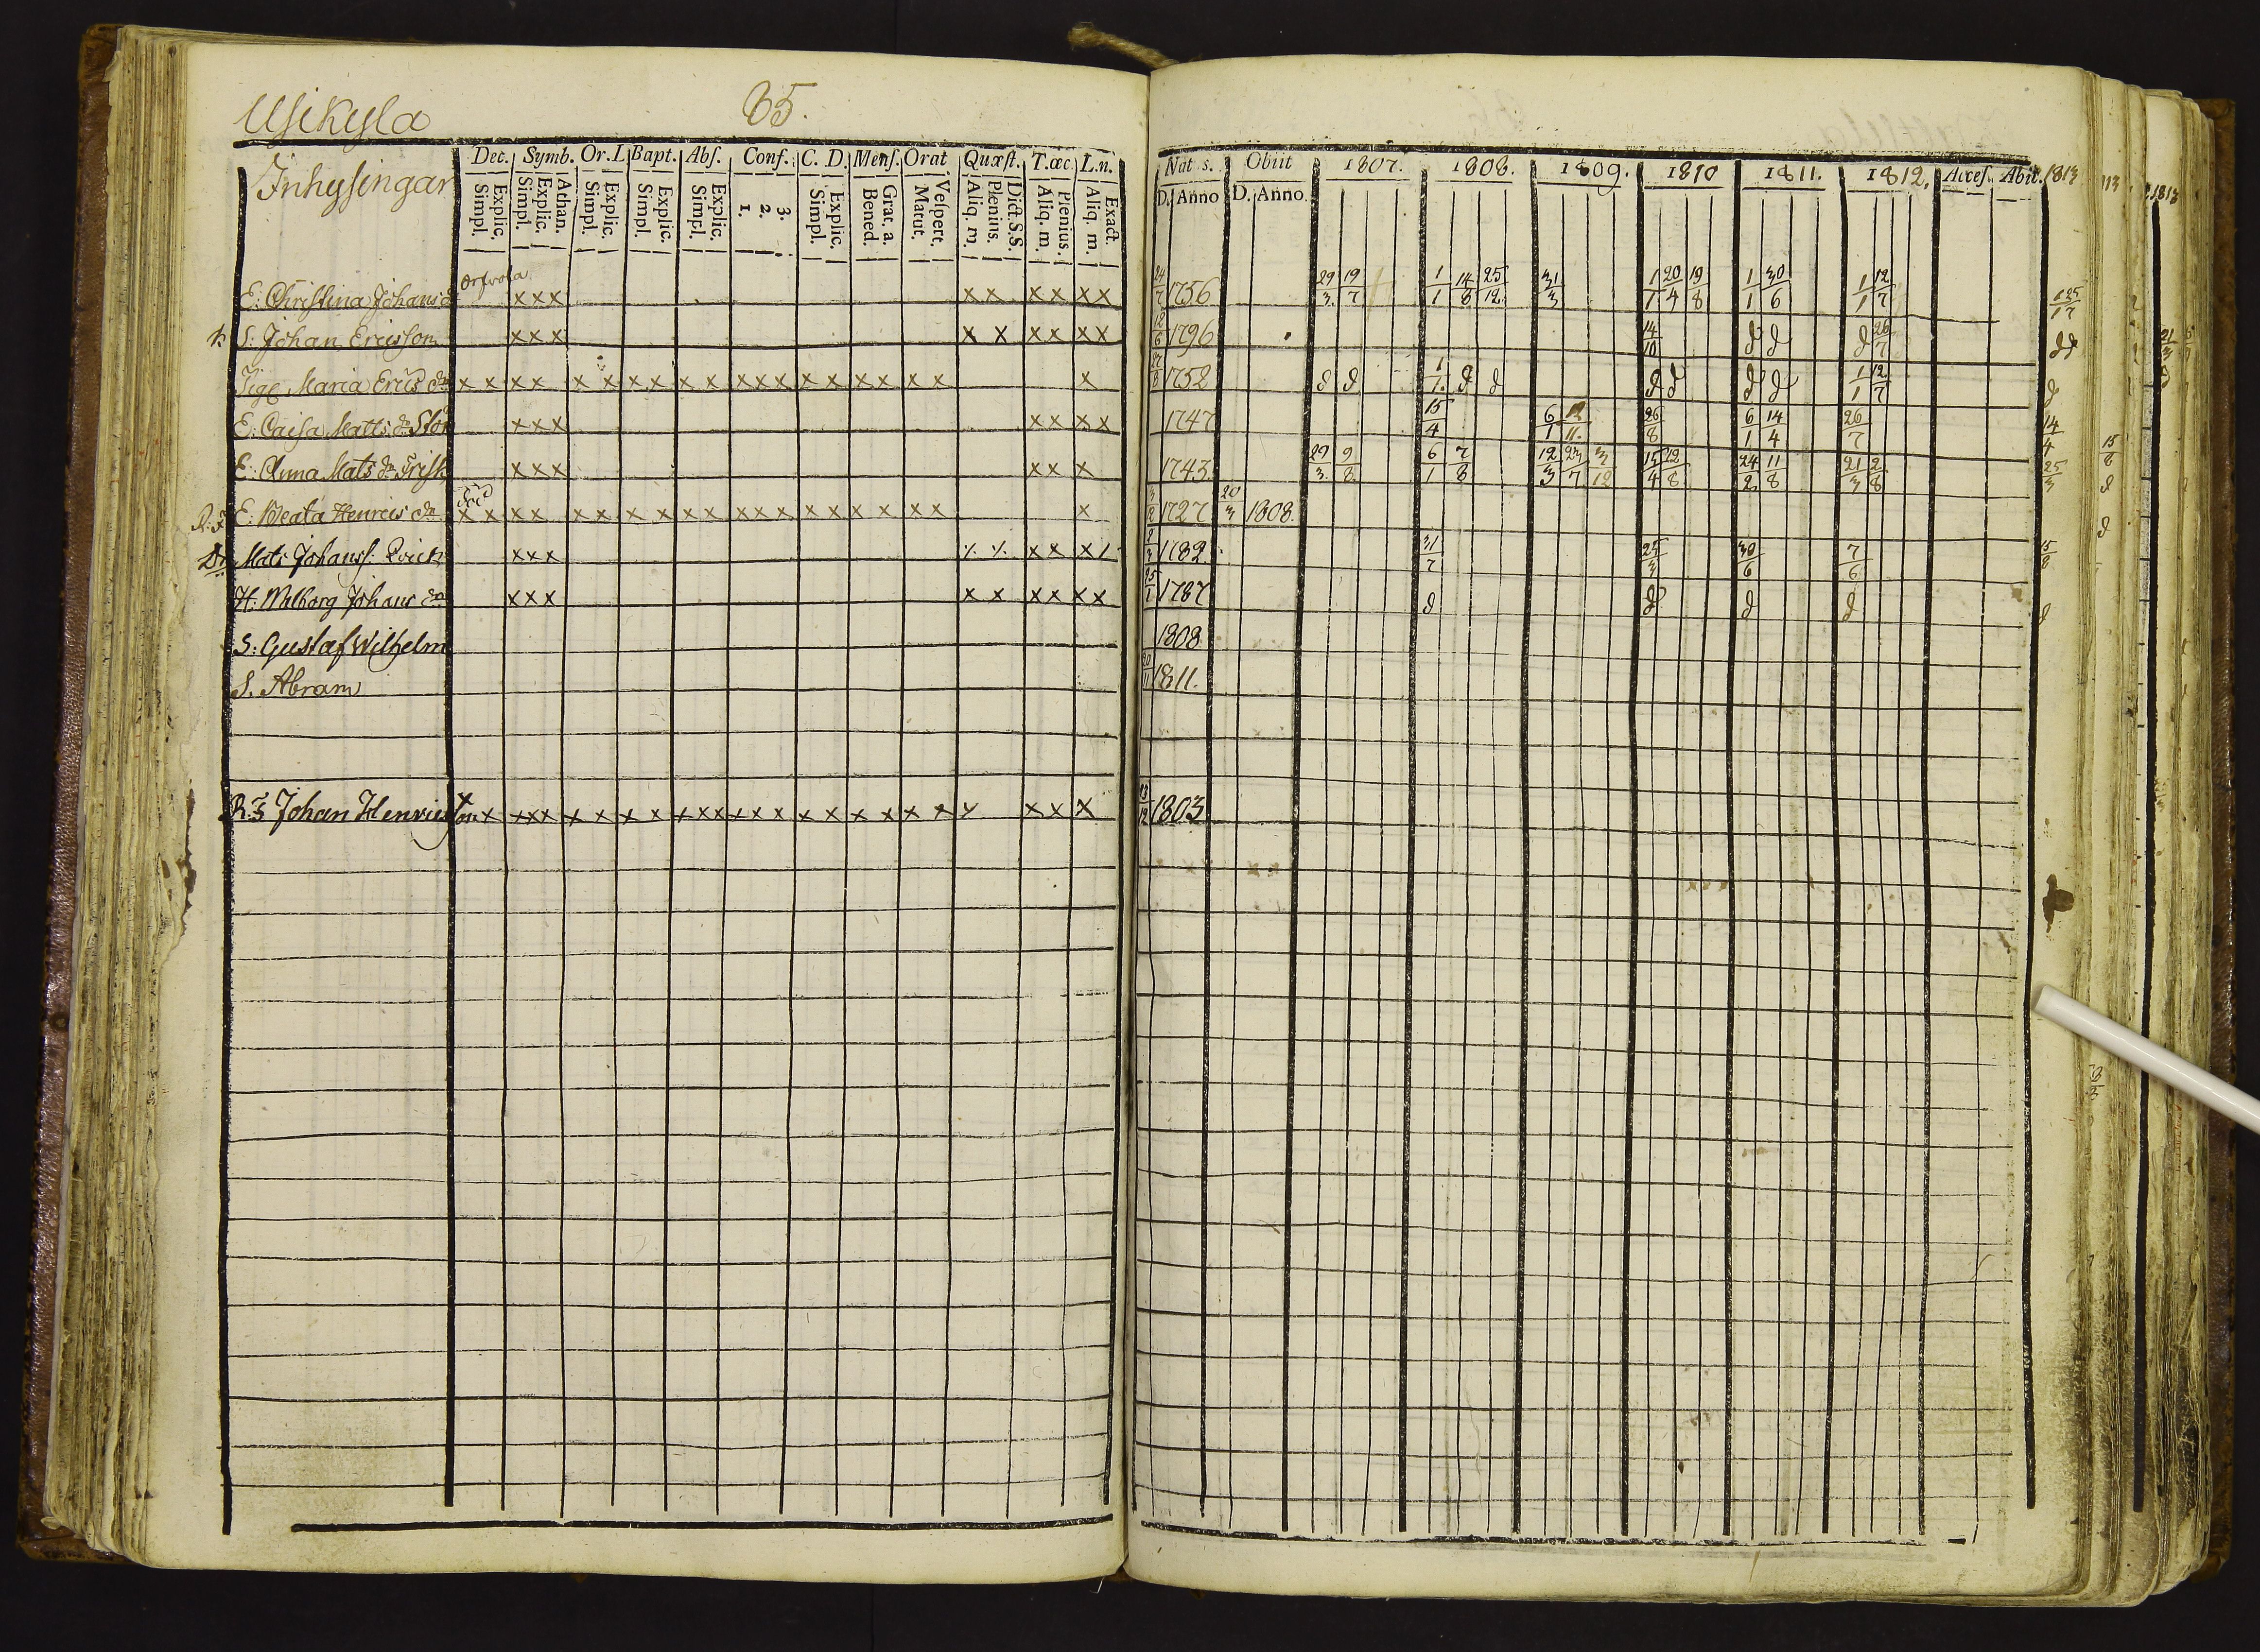 Usikyla 85.
Inhysingar Dec. Symb. Or. L Bapt. Abſ. Conf. C. D. Menſ. Orat Quæſt. T.œc L.n.
Simpl. Explic. Simpl. Explic. Athan. Simpl. Explic. Simpl. Explic. Simpl. Explic. 1. 2. 3. Simpl. Explic. Bened. Grat. a. Matut. Veſpert. Aliq. m. Plenius. Dict. S.S. Aliq. m. Plenius. Aliq. m. Exact.
E: Christina Johans d xxx x x x x x x
S: Johan Ericsson xxx x x x x x x
Pige Maria Erics dr x x x x x x x x x x x x x x x x x x x x
E: Caisa Matts dr xxx x x x x
E: Anna Mats dr Frisk xxx x x x
E: Beata Henrics dr x x x x x x x x x x x x x x x x x x x x
Mats Johanss: Qvick xxx x x
H: Walborg Johans dr xxx x x x x x x
S: Gustaf Wilhelm
S. Abram
Johan Henricsson x xxx x x x x x x x x x x x x x x x x x x x x
Nat s. Obiit 1807. 1808. 1809. 1810 1811. 1812. Acceſ. Abit. 1813
D. Anno D. Anno.
24/7 1756 29/3 19/7 1/1 14/8 25/12 31/3 1/1 20/4 19/8 1/1 30/6 1/1 12/7
12/6 1796 14/10 d d d 26/7 d d
27/8 1752 d d 1/1 d d d d d d 1/1 12/7 d
1747 15/4 6/1 12/11 26/8 6/1 14/4 26/7 14/4
1743 29/3 9/8 6/1 7/8 12/3 23/7 3/12 15/4 12/8 24/2 11/8 21/3 2/8 25/3
1727 20/3 1808.
1782 31/7 25/3 30/6 7/6 15/8
25/1 1787 d d d d d
1808
20/11 1811.
13/12 1803